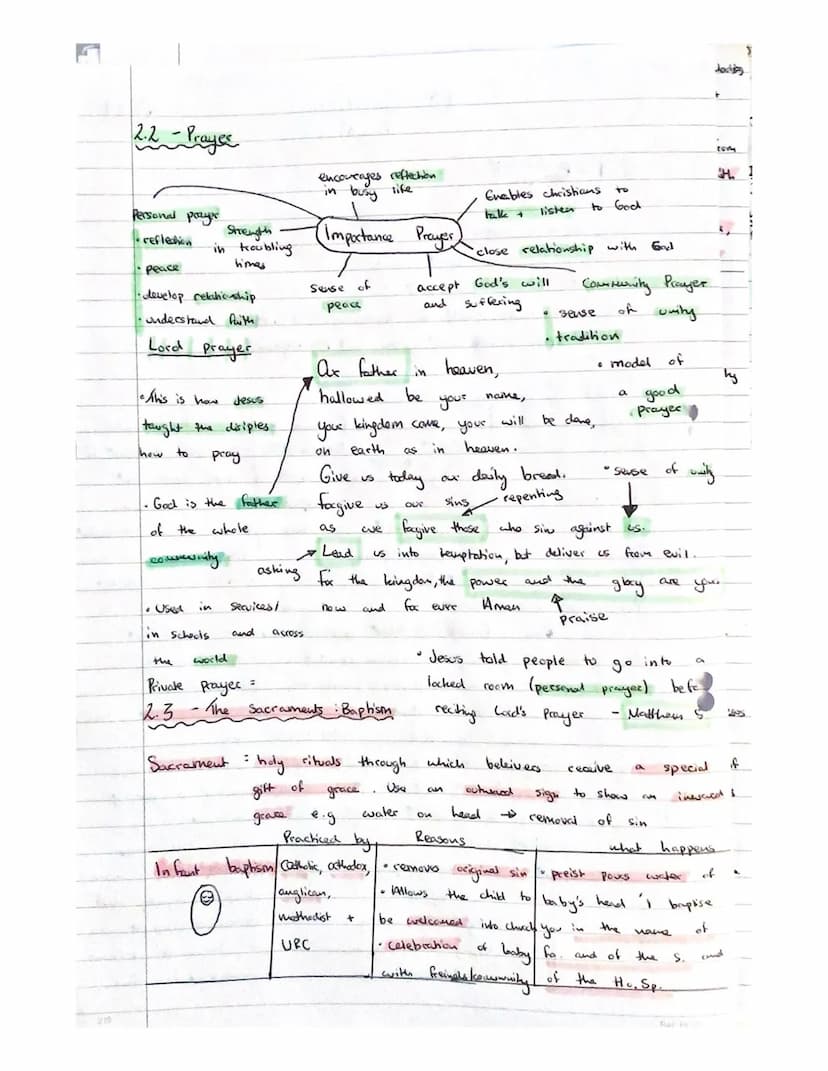 2.2 - Prayer
encourages reflection
in busy life
Enables christians to
talk + listen to God
Personal prayer
• reflection
• peace
• develop relationship
• understand faith
Strength
in troubling
times
Importance Prayer
close relationship with God
sense of
peace
accept God's will
and suffering
Community Prayer
• sense of unity
• tradition
• model of
a good
prayer
Lord prayer
• This is how Jesus
taught the diciples
how to pray
Our father in heaven,
hallowed be your name,
your kingdom come, your will be done,
on earth as in heaven.
Give us today our daily bread.
• sense of unity
forgive us our sins
repenting
as we forgive those who sin against us.
Lead us into temptation, but deliver us from evil.
asking
For the kingdom, the power and the glory are your
now and for ever Amen
praise
• God is the father
of the whole
community
• Used in services/
in schools and across
the world
Private Prayer =
• Jesus told people to go into a
locked room (personal prayer) befo
reciting Lord's Prayer - Matthew 5
2.3 - The Sacraments : Baptism
Sacrament : holy rituals through which beleivers receive a special
gift of grace. Use an outward sign to show an inward
grace e.g water on head → removal of sin
Practiced by Reasons what happens
Infant baptism
Catholic, orthodox,
anglican,
methodist +
URC
• remove original sin
• Allows the child to
be welcomed into church
• celebration of baby
with freinds/community
• preist pours water of
baby's head 'I baptise
you in the name of
fa. and of the S. and
of the Ho. Sp.